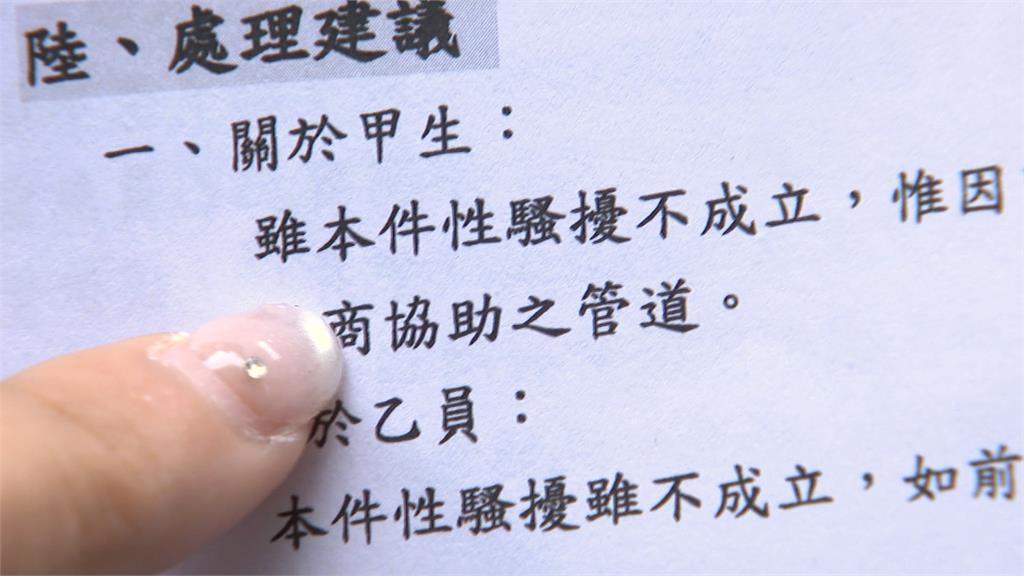 陸、處理建議
一、關於甲生：
雖本件性騷擾不成立，惟因
商協助之管道。
於乙員：
本件性騷擾雖不成立，如前